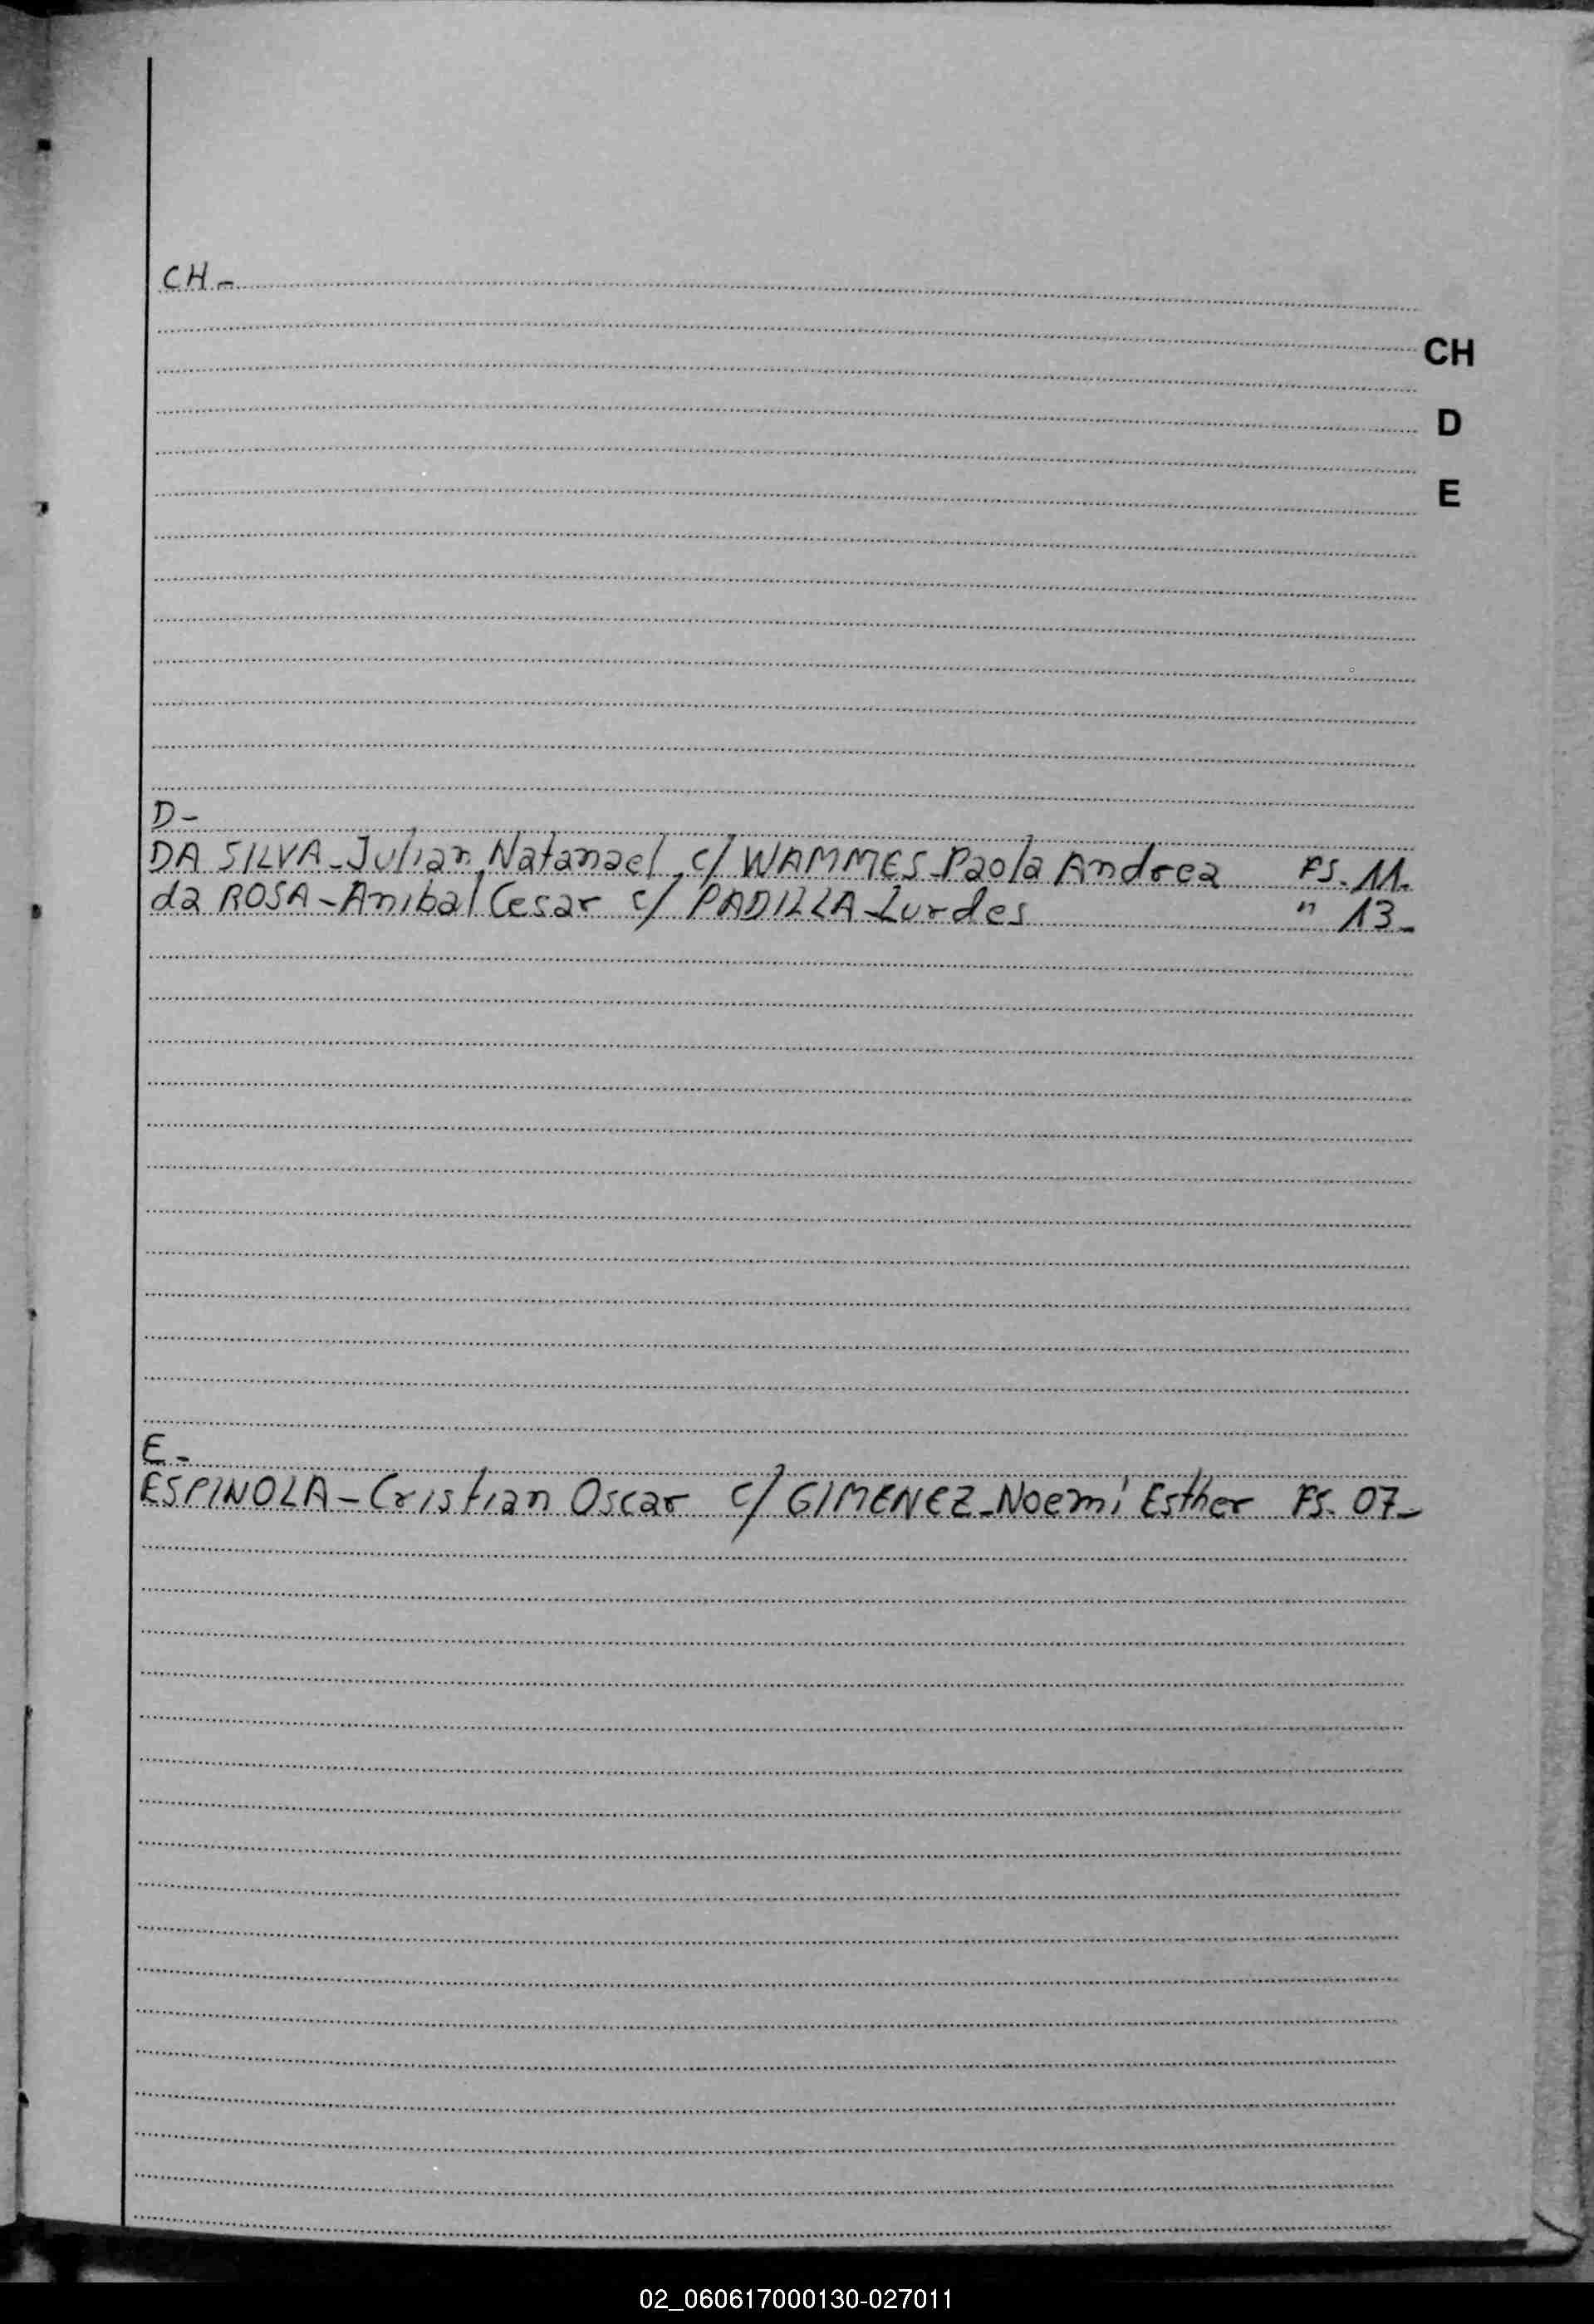 CH-
CH
D
E
D-
DA SILVA-Julian Natanael c/ WAMMES-Paola Andrea Fs. 11.
da ROSA-Anibal Cesar c/ PADILLA-Lurdes " 13-
E-
ESPINOLA-Cristian Oscar c/ GIMENEZ-Noemí Esther Fs. 07-
02_060617000130-027011